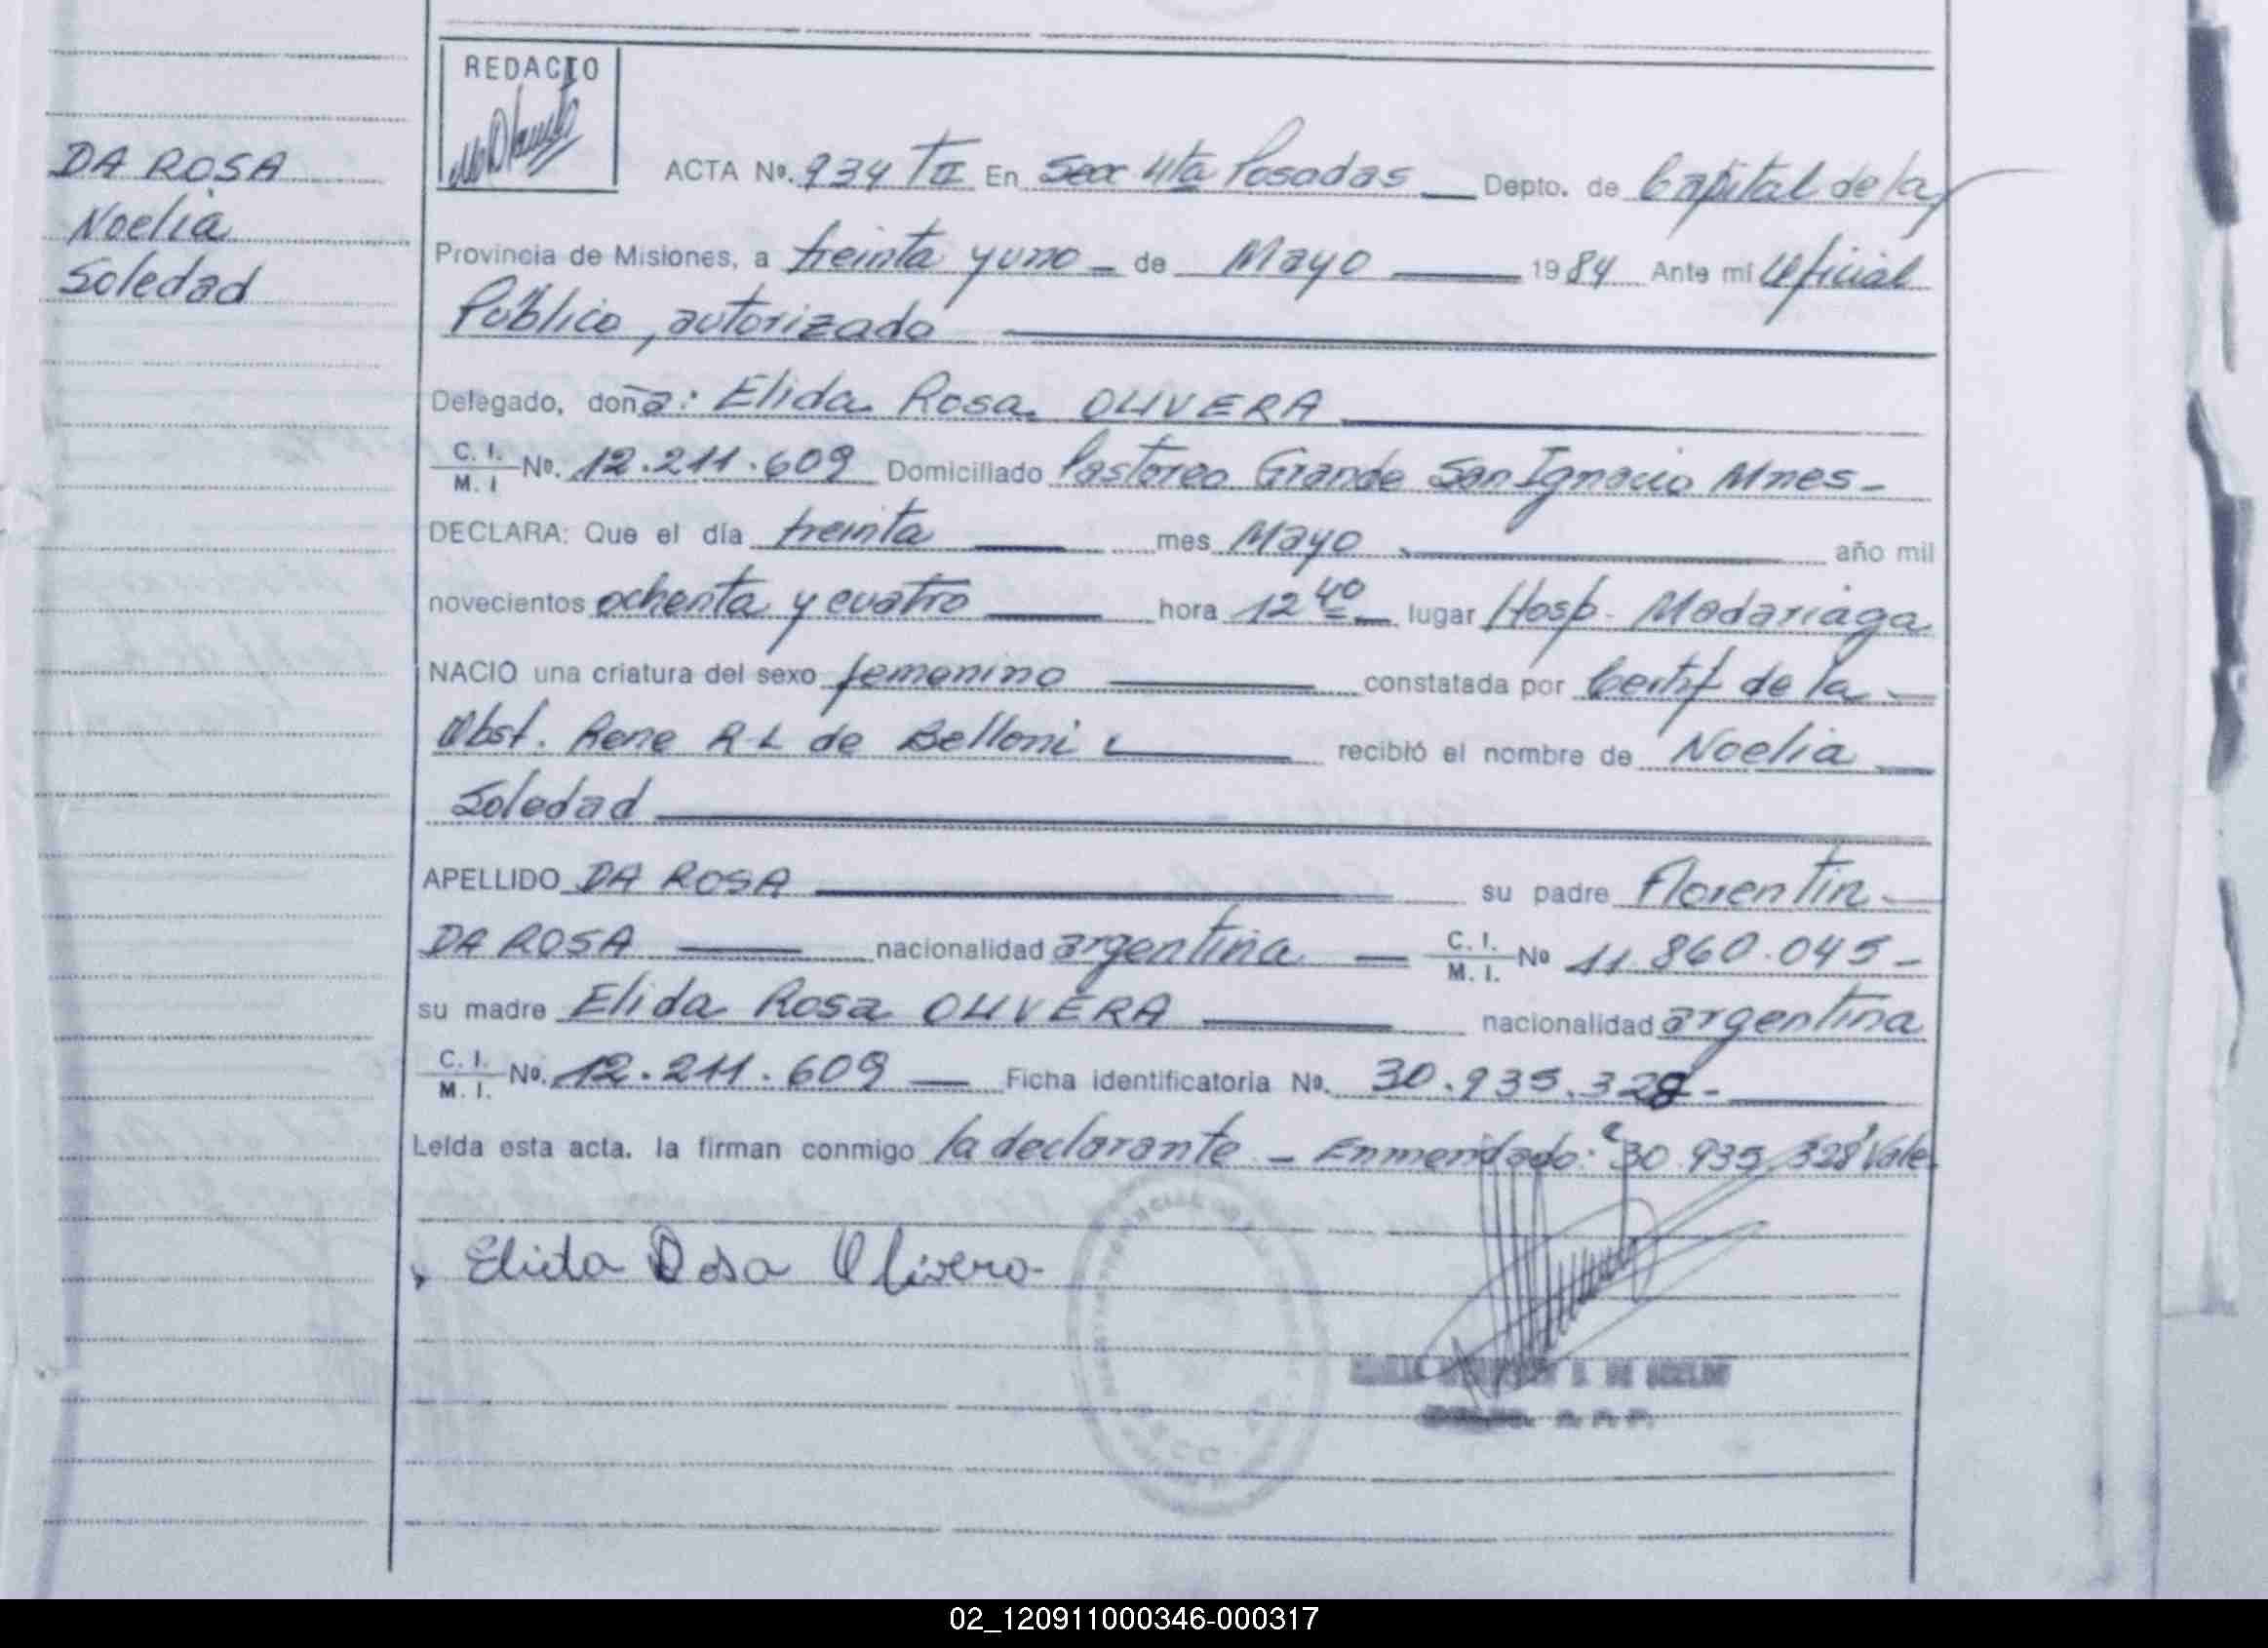 DA ROSA
Noelia
Soledad
REDACTO
ACTA Nº. 934 TII En Secc 4ta Posadas Depto. de Capital de la
Provincia de Misiones, a treinta y uno - de Mayo 1984 Ante mi Oficial
Público, autorizado
Delegado, doña: Elida Rosa OLIVERA
C. I. M. I Nº. 12.211.609 Domiciliado Pastoreo Grande San Ignacio Mnes-
DECLARA: Que el día treinta mes Mayo año mil
novecientos ochenta y cuatro hora 12 40 lugar Hosp. Madariaga
NACIO una criatura del sexo femenino constatada por Certif de la
Obst. Rene R L de Belloni recibió el nombre de Noelia
Soledad
APELLIDO DA ROSA su padre Florentin
DA ROSA nacionalidad argentina C. I. M. I. Nº 11.860.045-
su madre Elida Rosa OLIVERA nacionalidad argentina
C. I. M. I. Nº. 12.211.609 Ficha identificatoria Nº. 30.935.328-
Leida esta acta. la firman conmigo la declarante - Enmendado: "30 935 328" Vale.
Elida Rosa Olivera
02_120911000346-000317